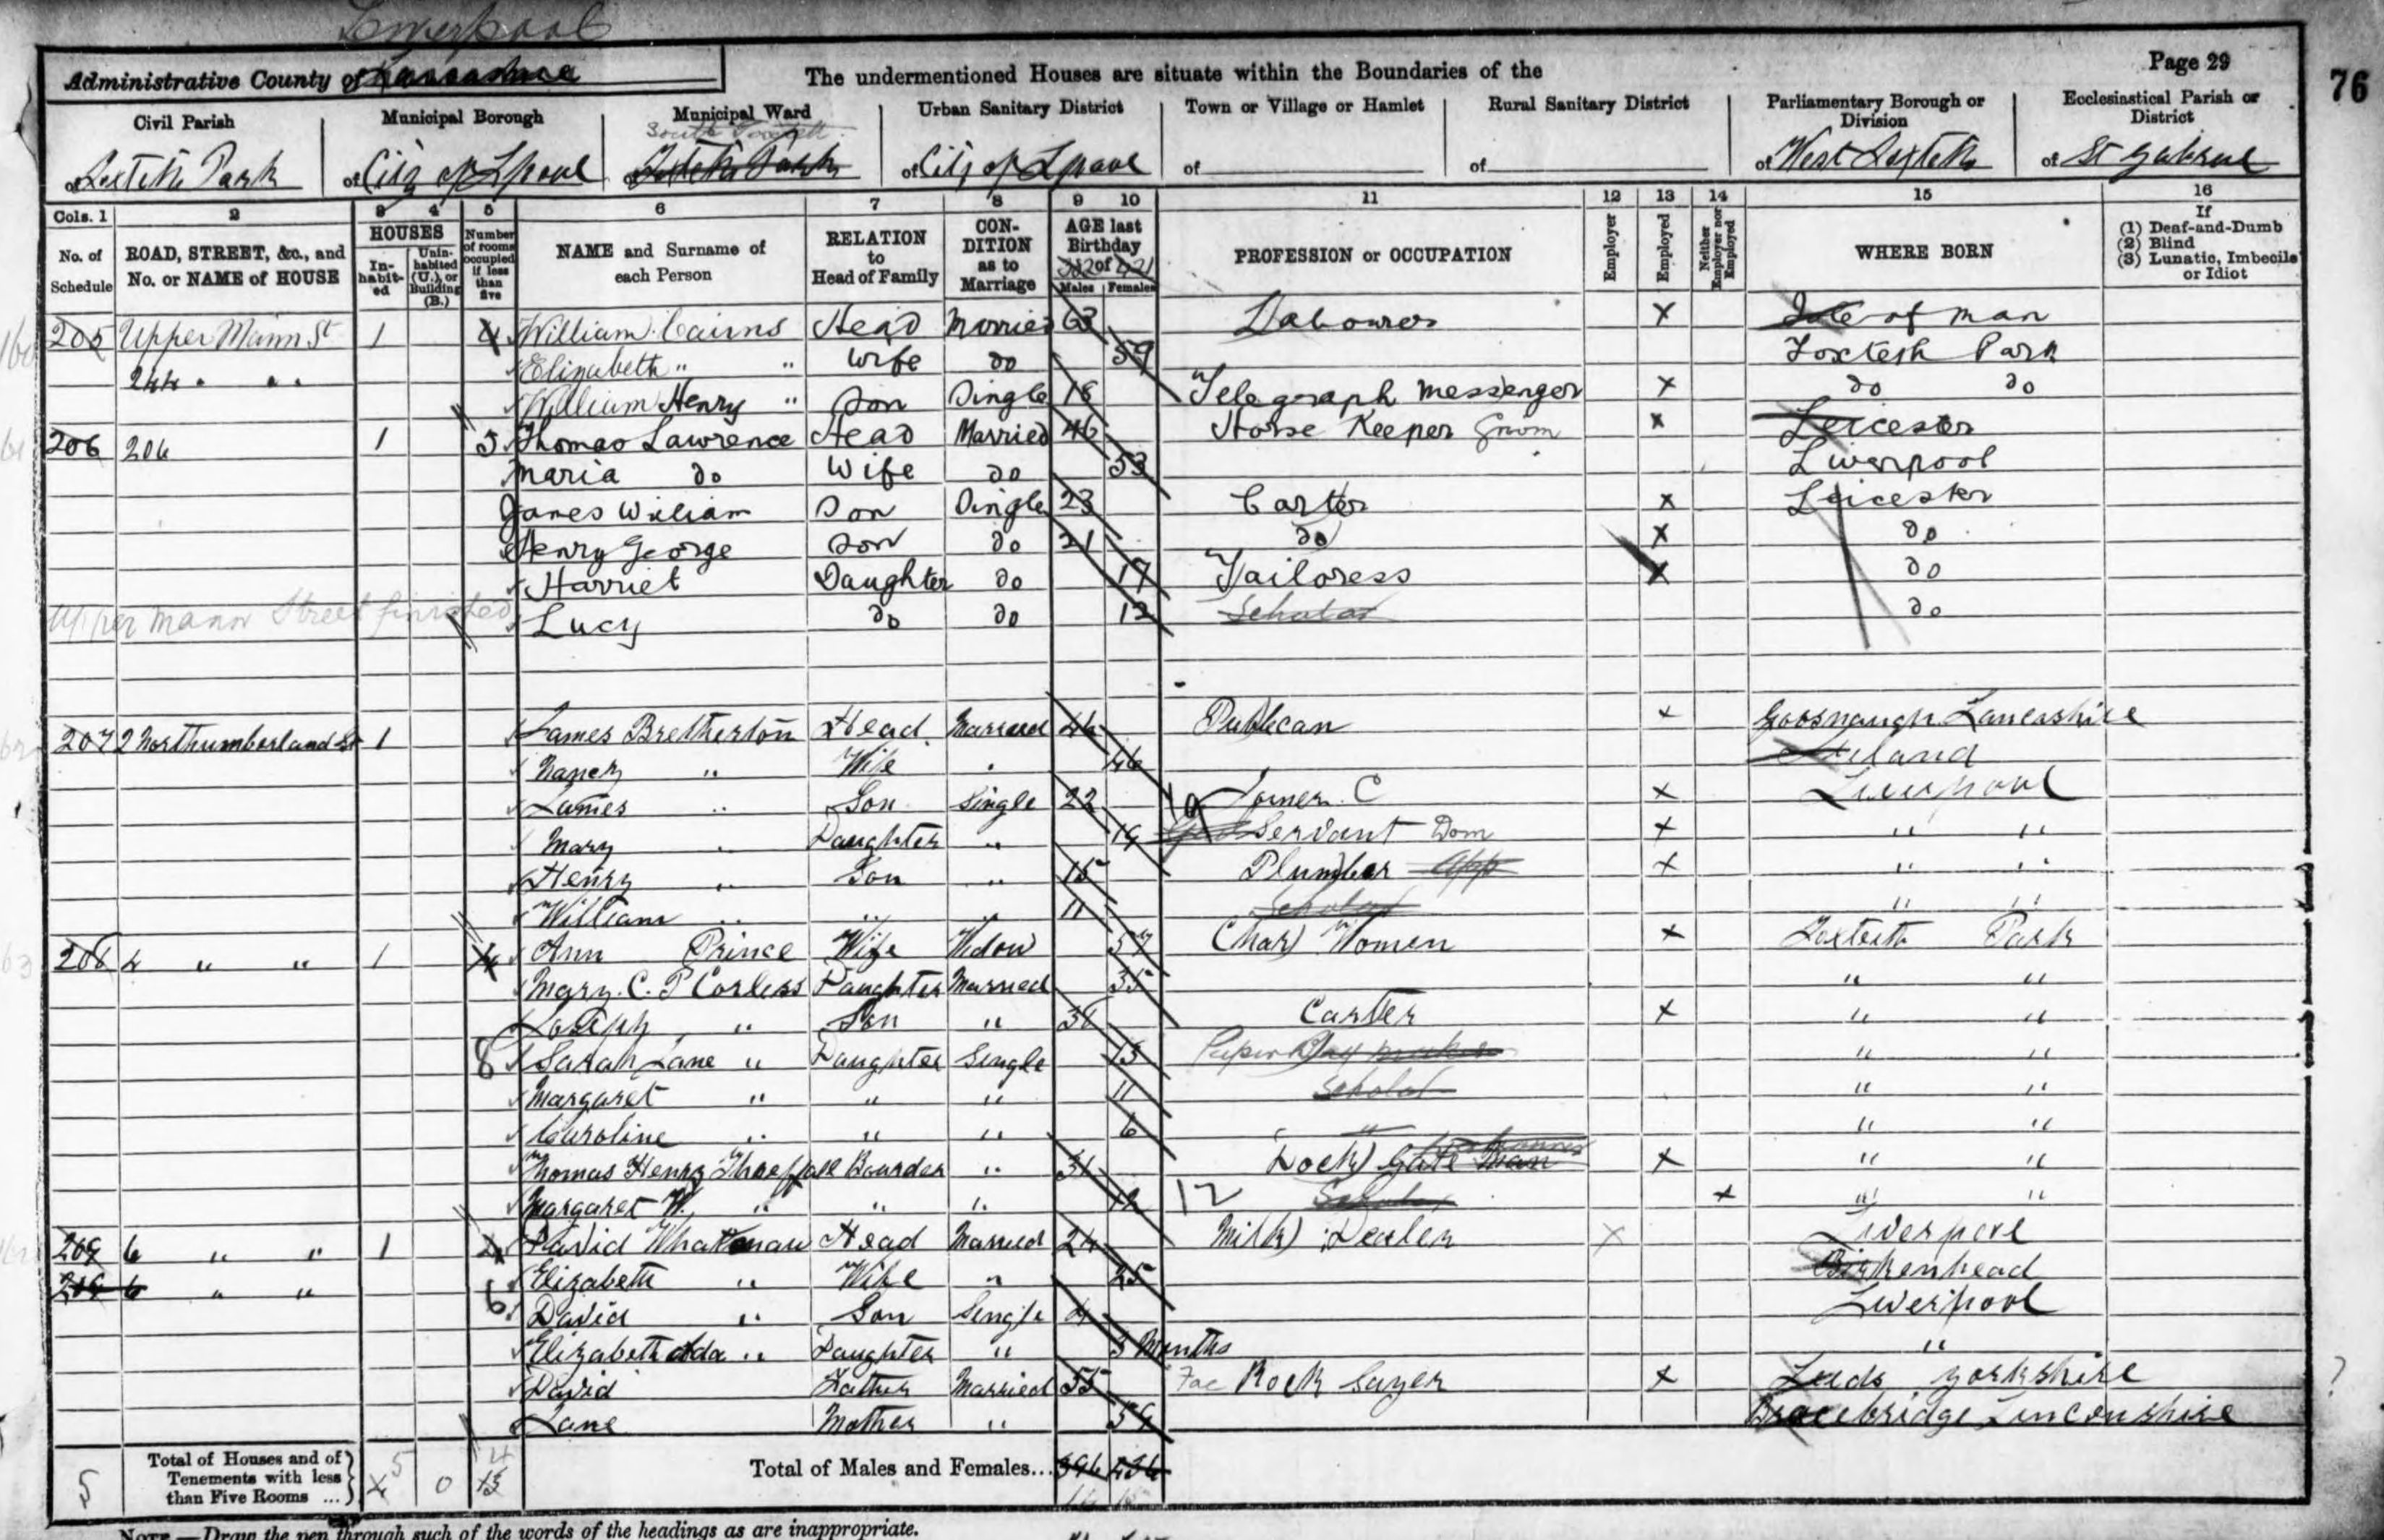 Liverpool
Administrative County of Lancashire The undermentioned Houses are situate within the Boundaries of the Page 29 76
Civil Parish Municipal Borough Municipal Ward Urban Sanitary District Town or Village or Hamlet Rural Sanitary District Parliamentary Borough or Division Ecclesiastical Parish or District
South Toxteth
of Toxteth Park of City of Lpool of Toxteth Park of City of Lpool of of of West Toxteth of St Gabriel
Cols. 1 2 3 4 5 6 7 8 9 10 11 12 13 14 15 16
No. of Schedule ROAD, STREET, &c., and No. or NAME of HOUSE HOUSES In-habit-ed Unin-habited (U.), or Building (B.) Number of rooms occupied if less than five NAME and Surname of each Person RELATION to Head of Family CON-DITION as to Marriage AGE last Birthday of Males Females PROFESSION or OCCUPATION Employer Employed Neither Employer nor Employed WHERE BORN If (1) Deaf-and-Dumb (2) Blind (3) Lunatic, Imbecile or Idiot
205 Upper Mann St 1 4 William Cairns Head Married 63 Labourer X Isle of Man
244 " " Elizabeth " " Wife do 59 Toxteth Park
William Henry " Son Single 18 Telegraph Messenger X do do
206 206 1 3 Thomas Lawrence Head Married 46 Horse Keeper Groom X Leicester
Maria do Wife do 53 Liverpool
James William Son Single 23 Carter X Leicester
Henry George Son do 21 do X do
Harriet Daughter do 17 Tailoress X do
Upper Mann Street finished Lucy do do 12 Scholar do
207 2 Northumberland St 1 James Bretherton Head Married 46 Publican X Goosnaugh Lancashire
Nancy " Wife " 46 Ireland
James " Son Single 22 Joiner C X Liverpool
Mary " Daughter " 19 Servant Dom X " "
Henry " Son " 15 Plumber App X " "
William " " " 11 Scholar " "
208 4 " " 1 4 Ann Prince Wife Widow 57 Char Women X Toxteth Park
Mary. C. P Corless Daughter Married 35 " "
Joseph " Son " 38 Carter X " "
8 Sarah Jane " Daughter Single 13 Paper Bag maker " "
Margaret " " " 11 Scholar " "
Caroline " " " 6 " " "
Thomas Henry Threlfall Boarder " 31 Dock Gate Man X " "
Margaret W. " " " 12 12 Scholar X " "
209 6 " " 1 4 David Whatmaw Head Married 24 Milk Dealer X Liverpool
209 6 " " Elizabeth " Wife " 25 Birkenhead
6 David " Son Single 4 Liverpool
Elizabeth Ada " Daughter " 3 Months "
David Father Married 55 Rock Sayer X Leeds Yorkshire
Jane Mother " 54 Bracebridge Linconshire
5 Total of Houses and of Tenements with less than Five Rooms ... 5 0 Total of Males and Females...
NOTE.—Draw the pen through such of the words of the headings as are inappropriate.